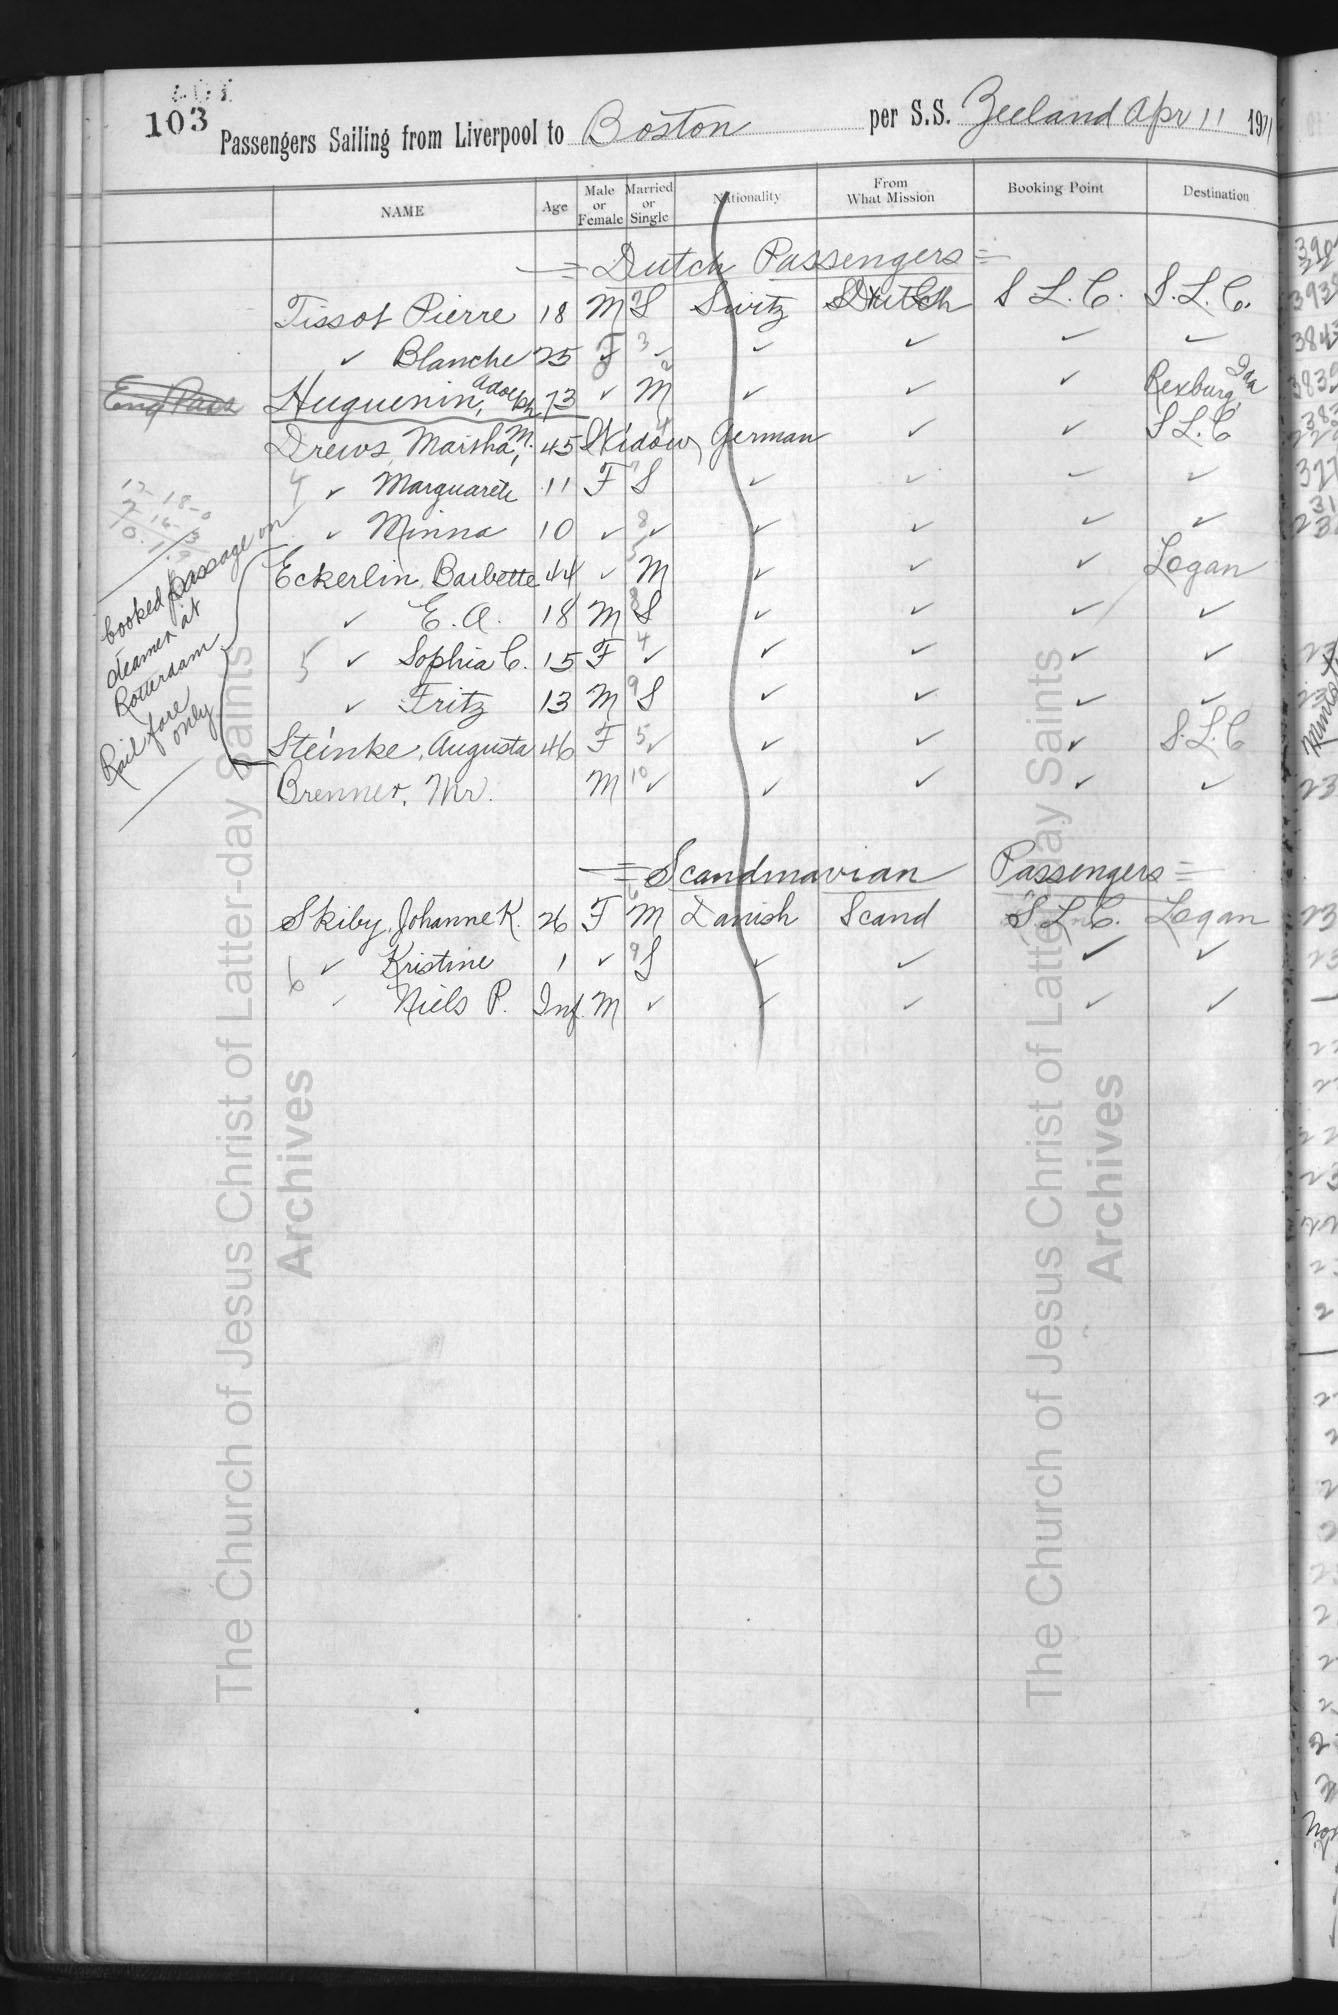 103
Passengers Sailing from Liverpool to Boston per S.S. Zeeland Apr 11 1911
NAME Age Male or Female Married or Single Nationality From What Mission Booking Point Destination
= Dutch Passengers =
Tissot Pierre 18 M S Switz Dutch S L. C. S. L. C.
✓ Blanche 25 F ✓ ✓ ✓ ✓ ✓
Eng Pass Huguenin, Adolph 73 ✓ M ✓ ✓ ✓ Rexburg, Ida
Drews, Martha M. 45 Widow German ✓ ✓ S L C
4 ✓ Marguarete 11 F S ✓ ✓ ✓ ✓
✓ Minna 10 ✓ ✓ ✓ ✓ ✓ ✓
Eckerlin, Barbette 44 ✓ M ✓ ✓ ✓ Logan
✓ E. A. 18 M S ✓ ✓ ✓ ✓
5 ✓ Sophia C. 15 F ✓ ✓ ✓ ✓ ✓
✓ Fritz 13 M S ✓ ✓ ✓ ✓
Steinke, Augusta 46 F ✓ ✓ ✓ ✓ S. L. C
Brenner, Mr. M ✓ ✓ ✓ ✓ ✓
booked passage on
steamer at
Rotterdam
Rail fare
only
= Scandinavian Passengers =
Skiby, Johanne K. 26 F M Danish Scand S. L. C. Logan
6 ✓ Kristine 1 ✓ S ✓ ✓ ✓ ✓
✓ Niels P. Inf. M ✓ ✓ ✓ ✓ ✓
The Church of Jesus Christ of Latter-day Saints
Archives
The Church of Jesus Christ of Latter-day Saints
Archives